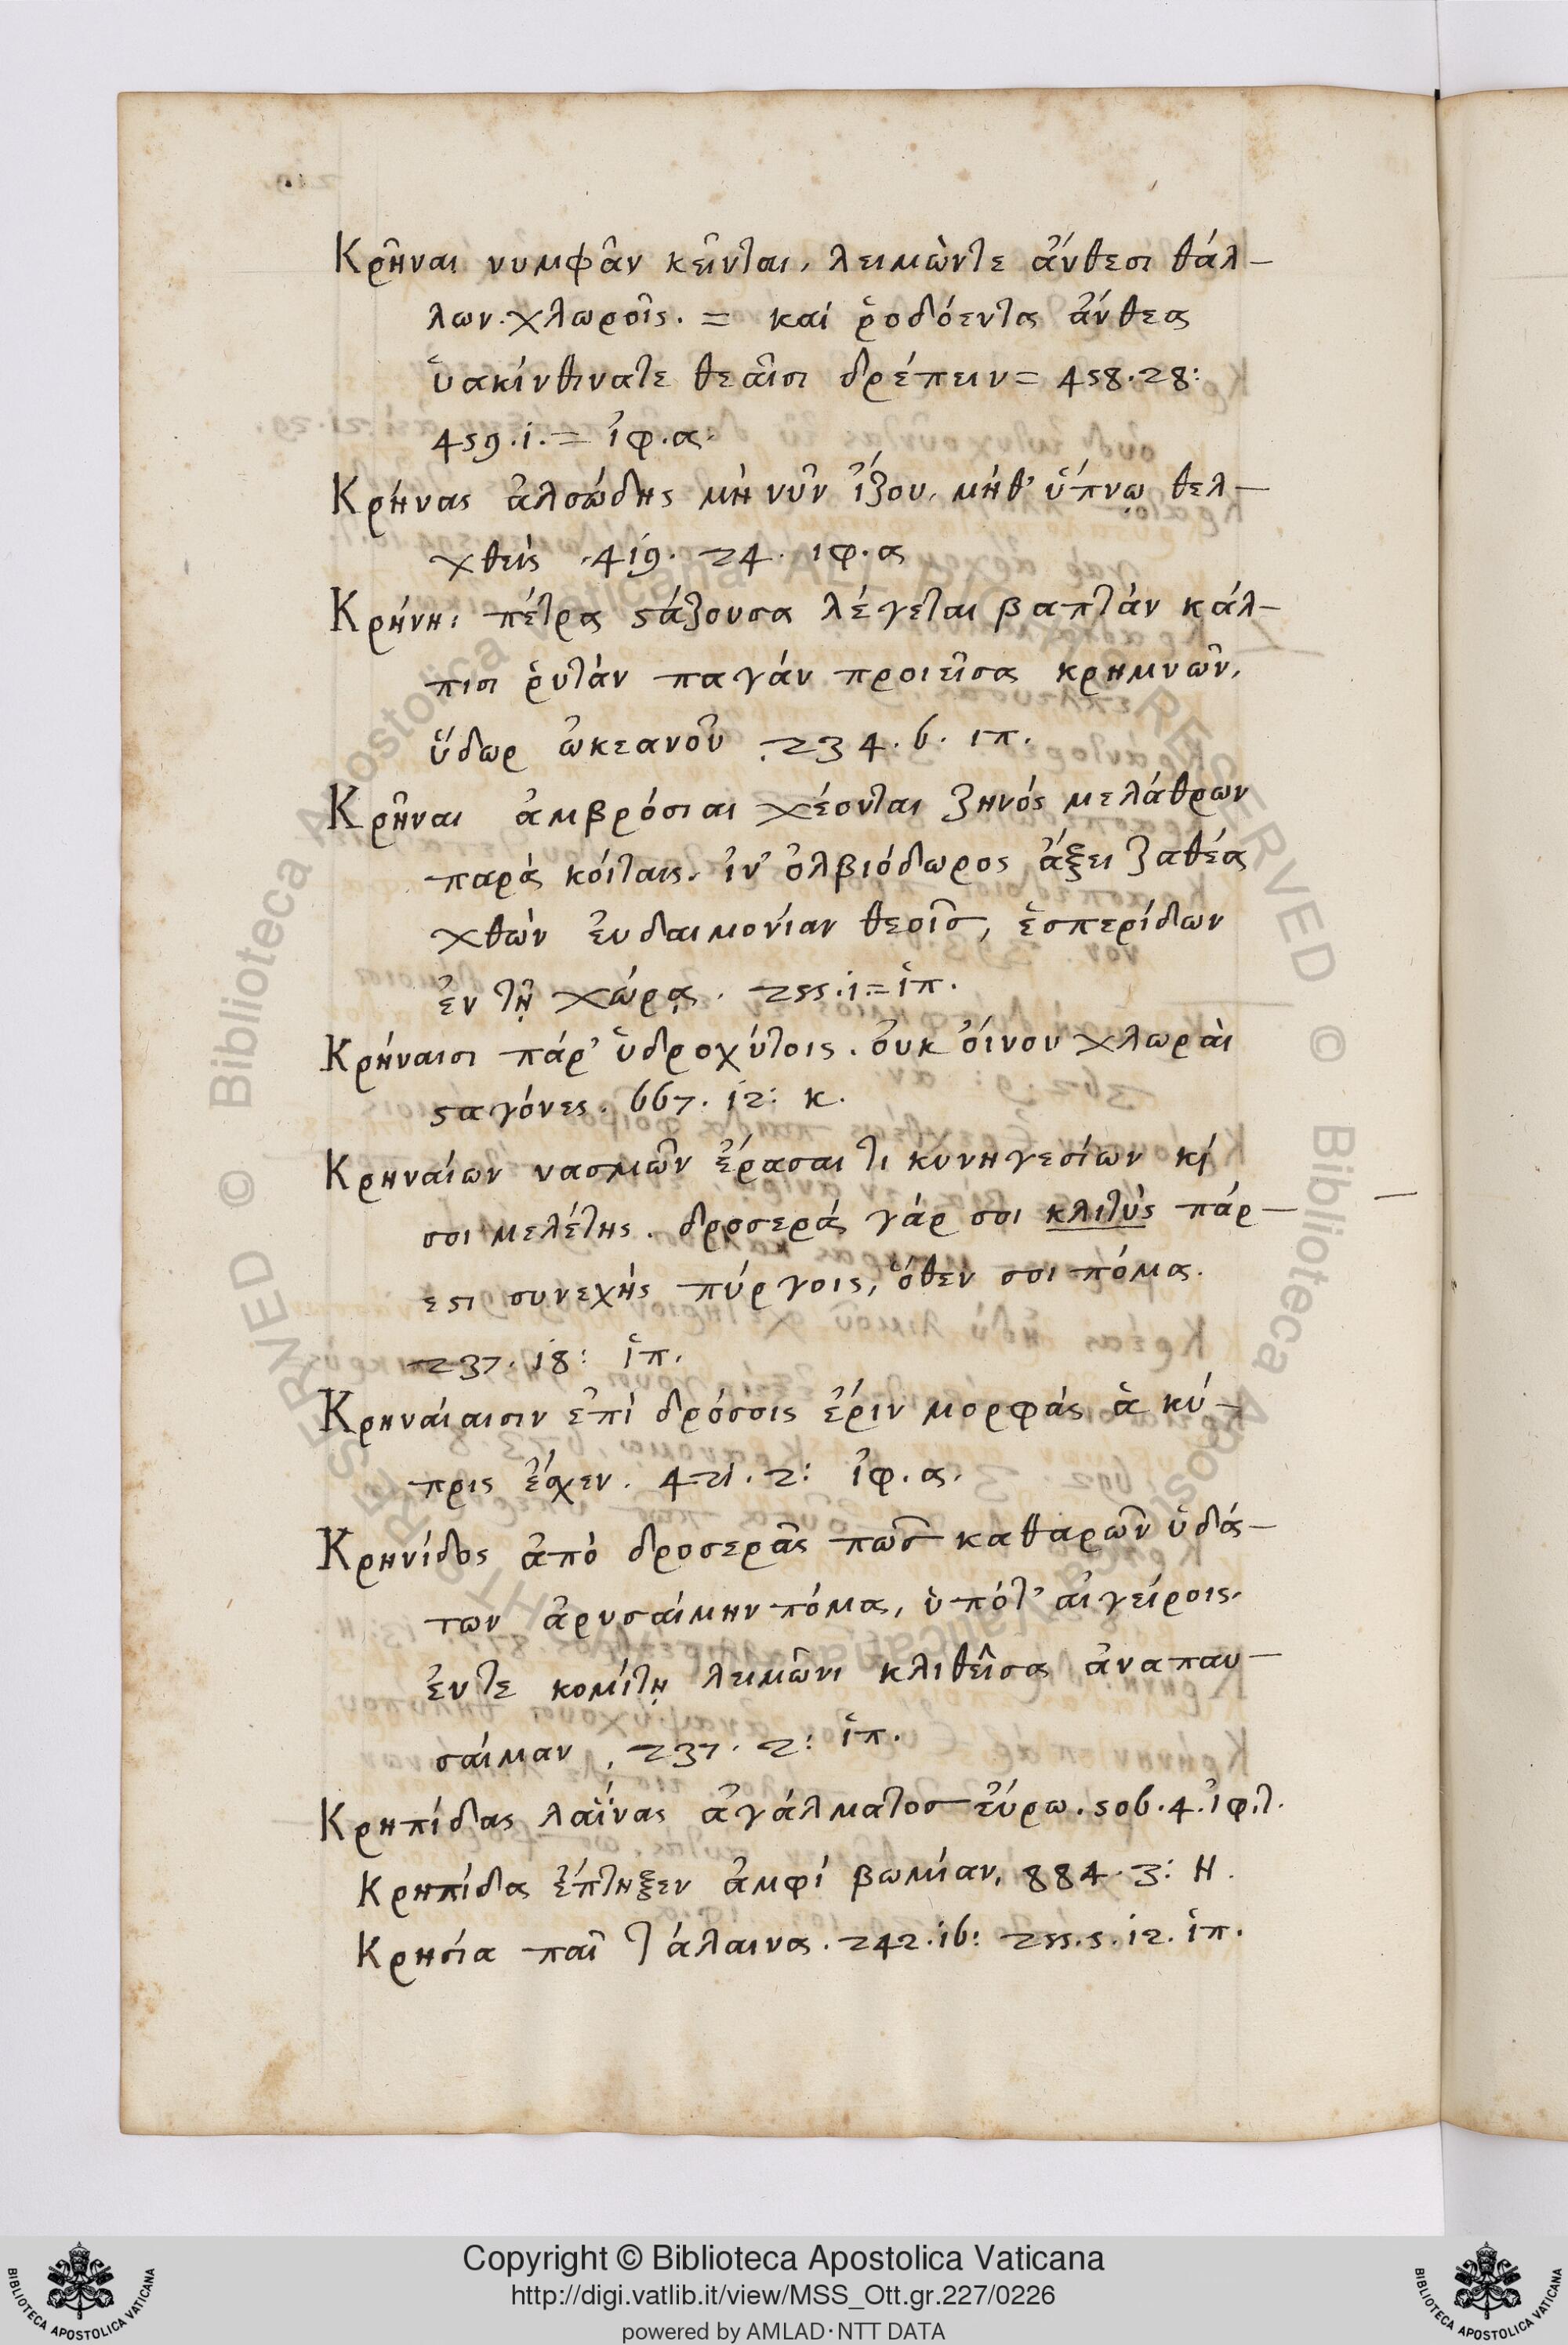 Κρῆναι νυμφᾶν κεῖνται, λειμὼντε ἄνθεσι θάλ-
λων χλωροῖς. = καὶ ῥοδόεντα ἄνθεα
ὑακίνθινατε θεαῖσι δρέπειν = 458.28:
459.1. = ἰφ.α.
Κρήνας ἀλσώδης μὴ νῦν ἵζου, μήθ᾽ ὕπνῳ θελ-
χθεὶς .419. 24. ιφ.α
Κρήνη: πέτρα ϛάζουσα λέγεται βαπτὰν κάλ-
πισι ῥυτὰν παγάν προιεῖσα κρημνῶν,
ὕδωρ ὠκεανοῦ .234.6. ιπ.
Κρῆναι ἀμβρόσιαι χέονται ζηνός μελάθρων
παρὰ κοίταις. ἵν᾽ ὀλβιόδωρος ἄξει ζαθέα
χθὼν ἐυδαιμονίαν θεοῖσ, ἑσπερίδων
ἐν τῇ χώρᾳ. 255.1.= ἱπ.
Κρήναισι πάρ᾽ ὑδροχύτοις. ὀυκ ὄινου χλωρὰι
ϛαγόνες. 667. 12: κ.
Κρηναίων νασμῶν ἔρασαι τι κυνηγεσίων κὶ
σοι μελέτης. δροσερά γάρ σοι κλιτὺς πάρ-
εϛι συνεχὴς πύργοις, ὅθεν σοι πόμα.
237. 18: ἱπ.
Κρηνάιαισιν ἐπὶ δρόσοις ἔριν μορφάς ἁ κύ-
πρις ἔσχεν. 421.2: ἰφ.α.
Κρηνίδος ἀπὸ δροσερᾶς πῶσ καθαρῶν ὑδά-
των ἀρυσαίμην πόμα, ὑπότ᾽ αἰγείροις.
ἐντε κομίτῃ λειμῶνι κλιθεῖσα ἀναπαυ-
σάιμαν, 237. 2: ἱπ.
Κρηπίδας λαΐνας ἀγάλματοσ ἐύρω. 506.4. ἰφ.τ.
Κρηπίδα ἔπτηξεν ἀμφὶ βωμίαν, 884.3: Η.
Κρησία παῖ τάλαινα. 242.16: 255.5.12. ἱπ.
Copyright © Biblioteca Apostolica Vaticana
http://digi.vatlib.it/view/MSS_Ott.gr.227/0226
powered by AMLAD·NTT DATA